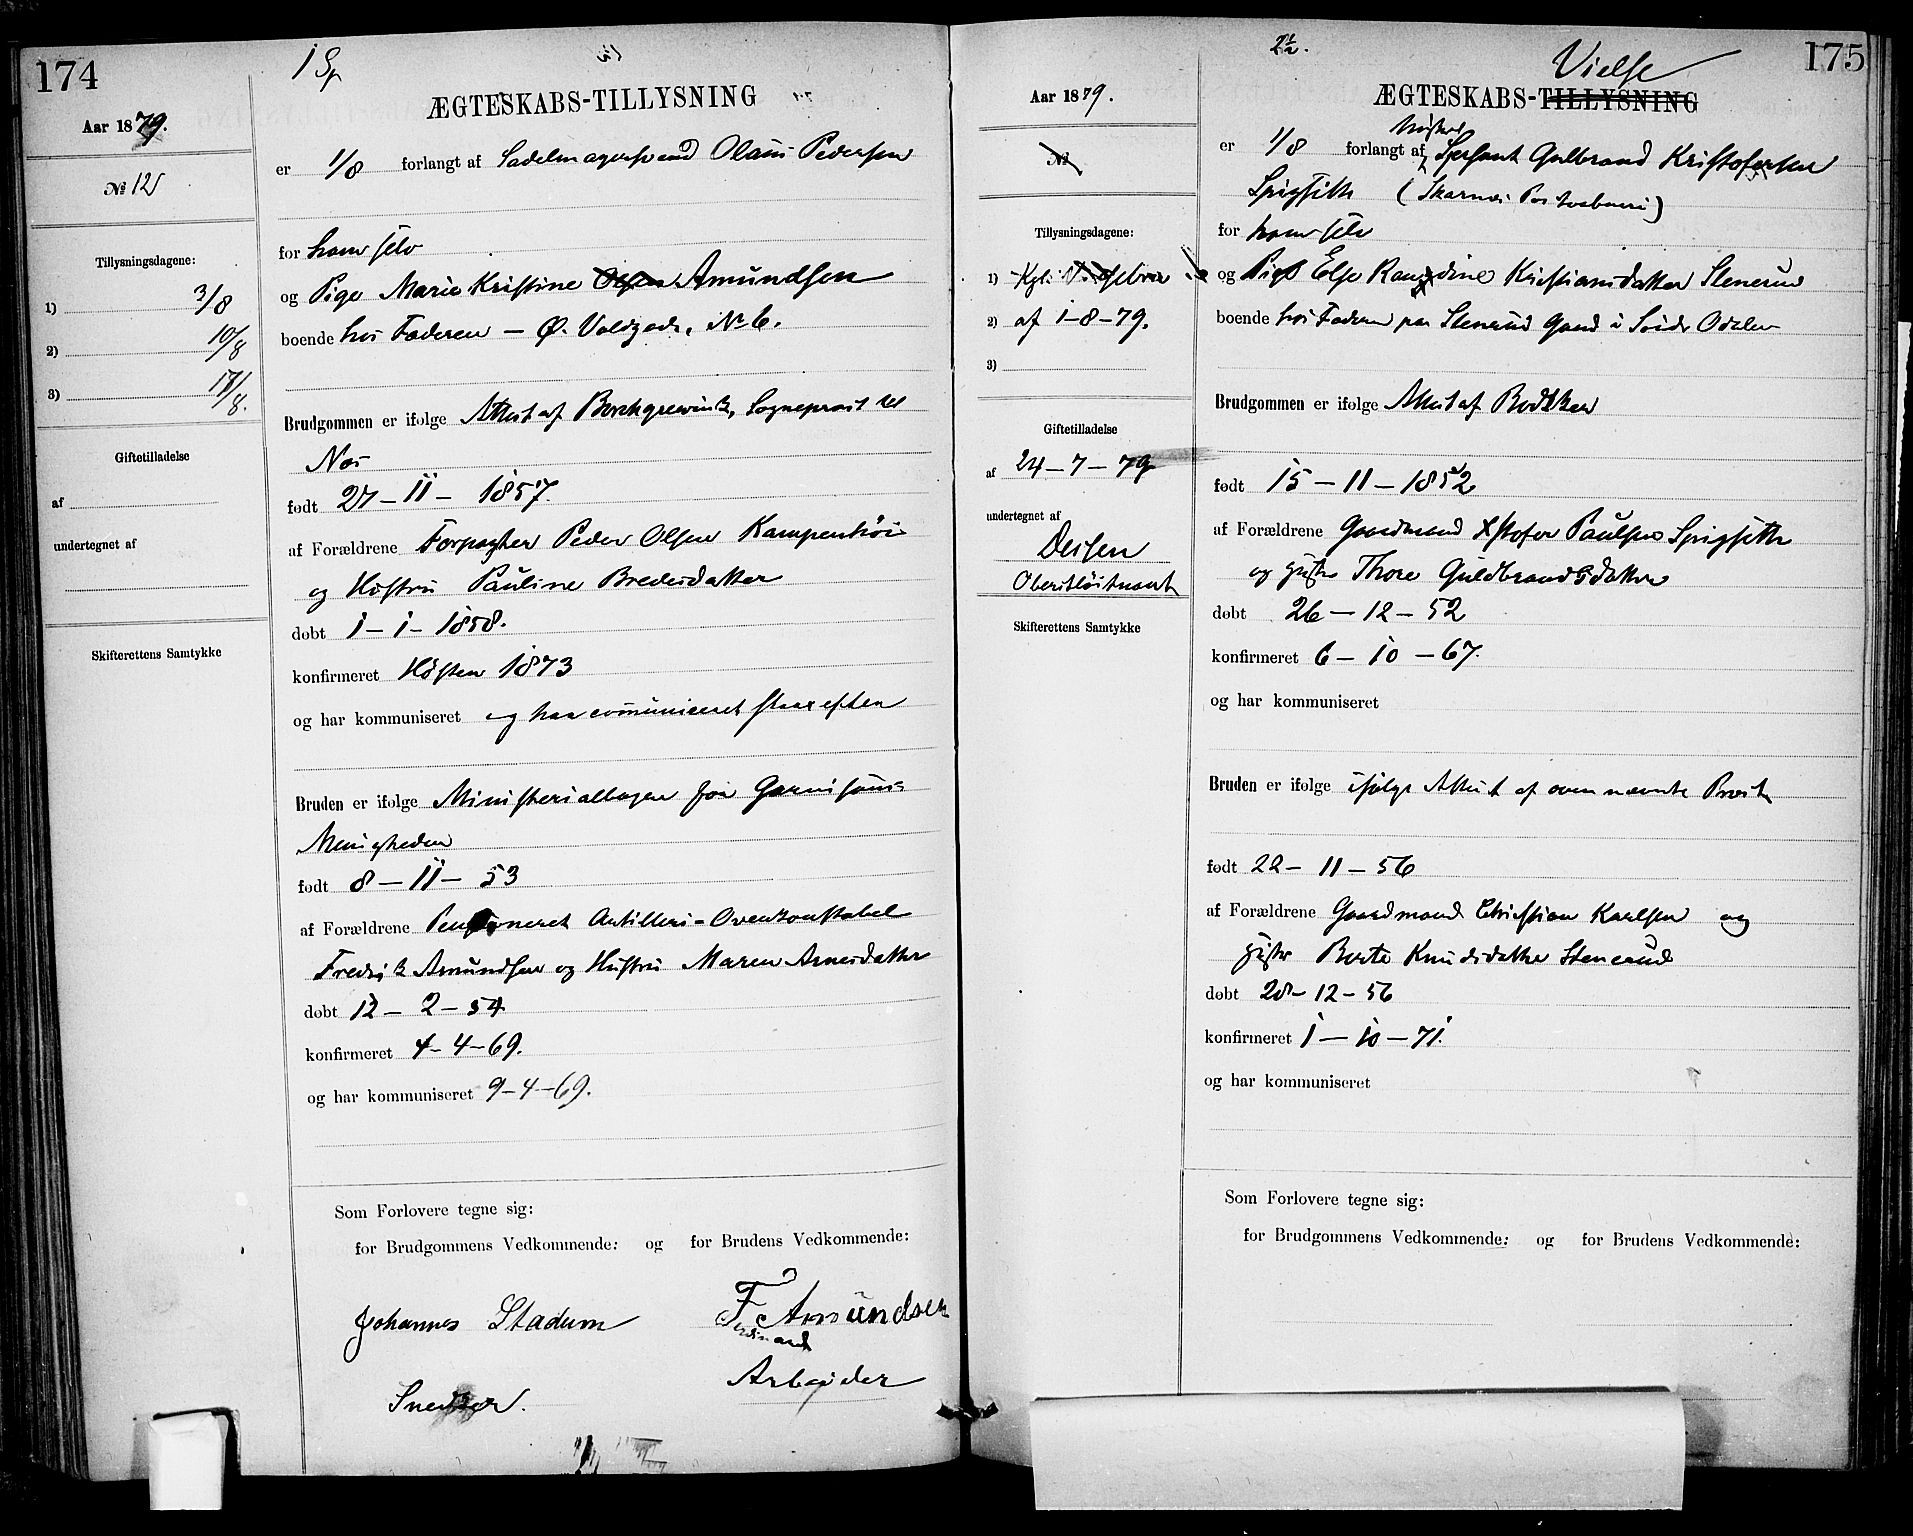 174
1 Sp
Aar 1879.
ÆGTESKABS-TILLYSNING
er 1/8 forlangt af Sadelmagersvend Olaus Pedersen
№ 12
for ham selv
Tillysningsdagene:
og Pige Marie Kristine Olsen Amundsen
1) 3/8
boende hos Faderen - Ø. Voldgade, № 6.
2) 10/8
3) 17/8.
Brudgommen er ifølge Attest af Borchgrevink, Sogneprest til
Nes
Giftetilladelse
født 27-11-1857.
af
af Forældrene Forpagter Peder Olsen
undertegnet af
og Hustru Pauline Bredesdatter
døbt 1-1-1858.
Skifterettens Samtykke
konfirmeret Høsten 1873
og har kommuniseret og har communiceret strax efter
Bruden er ifølge Ministerialbogen for Garnisons-
Menigheden
født 8-11-53
af Forældrene Pensioneret Artilleri-Overkonstabel
Fredrik Amundsen og Hustru Maren Arnesdatter
døbt 12-2-54
konfirmeret 4-4-69.
og har kommuniseret 9-4-69.
Som Forlovere tegne sig:
for Brudgommens Vedkommende: og for Brudens Vedkommende:
Johannes Stadum F. Amundsen
Ferdinand
Snedker. Arbeider
2½.
Vielse
175
Aar 1879.
ÆGTESKABS-TILLYSNING
№
er 1/8 forlangt af Sersant Gulbrand Kristofersen
Spigseth (Skarnes Postaabneri)
Tillysningsdagene:
for ham selv
1) Kgl.
og Pige Else Randine Kristiansdatter Stenerud
2) af 1-8-79.
boende hos Faderen paa Stenerud Gaard i Søndr Odalen
3)
Brudgommen er ifølge Attest af
Giftetilladelse
af 24-7-79
født 15-11-1852
undertegnet af
af Forældrene Gaardmand Xstofer Paulsen Spigseth
og Thore Guldbrandsdatter
Oberstløitnant
døbt 26-12-52
Skifterettens Samtykke
konfirmeret 6-10-67.
og har kommuniseret
Bruden er ifølge ifølge Attest af ovennævnte Prest
født 22-11-56
af Forældrene Gaardmand Christian Karlsen og
Berte Knudsdatter Stenerud
døbt 28-12-56
konfirmeret 1-10-71.
og har kommuniseret
Som Forlovere tegne sig:
for Brudgommens Vedkommende: og for Brudens Vedkommende: